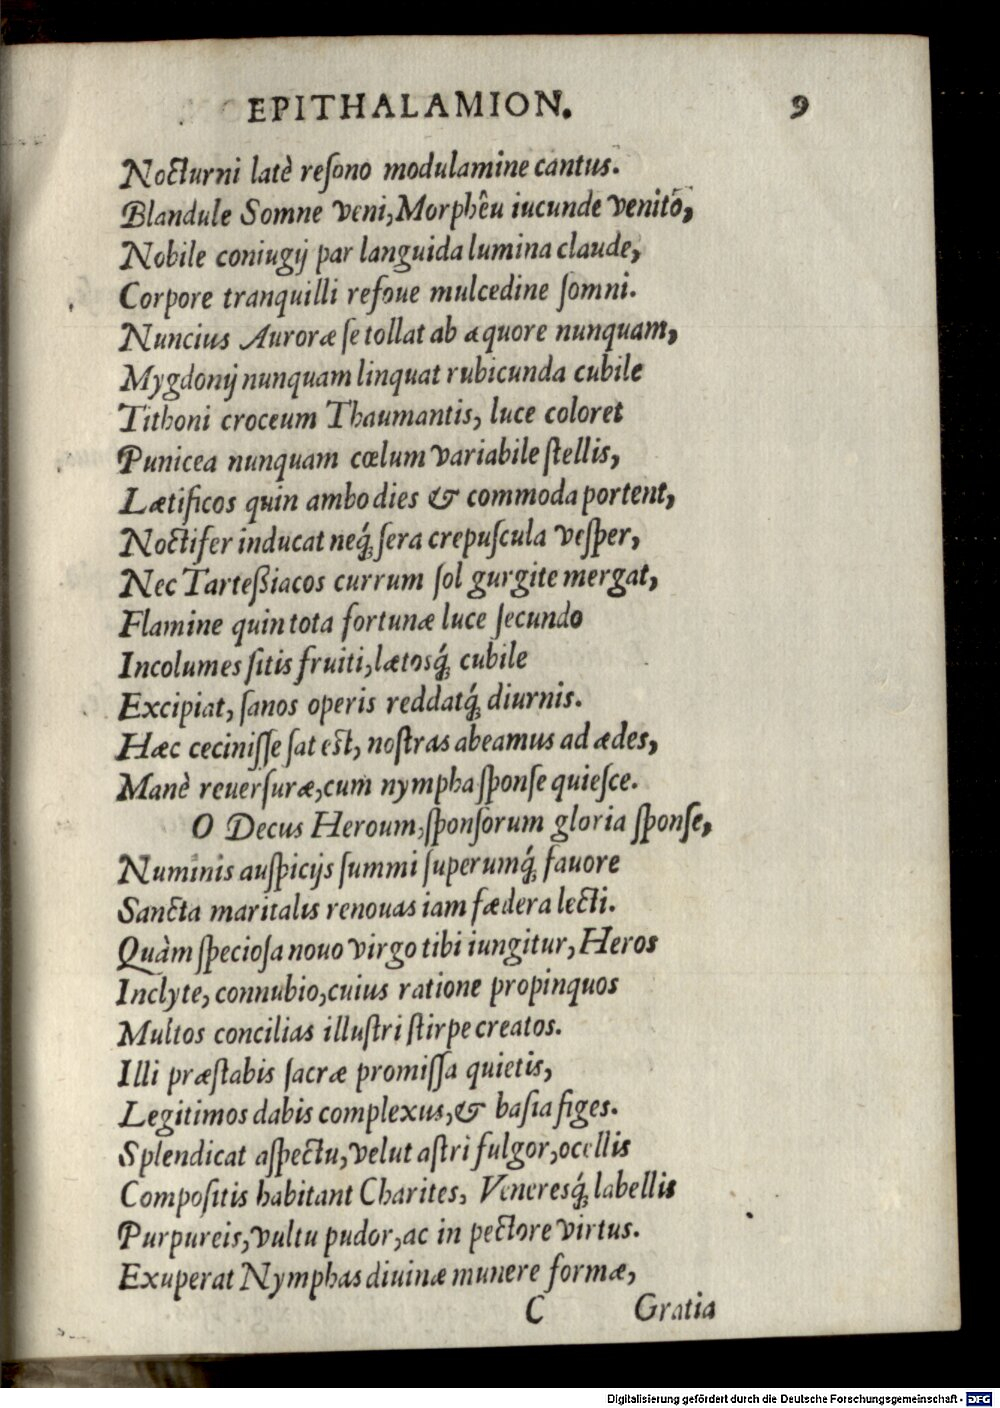 EPITHALAMION. 9
Nocturni latè reſono modulamine cantus.
Blandule Somne veni, Morphêu iucunde venito,
Nobile coniugij par languida lumina claude,
Corpore tranquilli refoue mulcedine ſomni.
Nuncius Auroræ ſe tollat ab æquore nunquam,
Mygdonij nunquam linquat rubicunda cubile
Tithoni croceum Thaumantis, luce coloret
Punicea nunquam cœlum variabile ſtellis,
Lætificos quin ambo dies & commoda portent,
Noctifer inducat neq́; ſera crepuſcula veſper,
Nec Tarteßiacos currum ſol gurgite mergat,
Flamine quin tota fortunæ luce ſecundo
Incolumes ſitis fruiti, lætosq́; cubile
Excipiat, ſanos operis reddatq́; diurnis.
Hæc ceciniſſe ſat eſt, noſtras abeamus ad ædes,
Manè reuerſuræ, cum nympha ſponſe quieſce.
O Decus Heroum, ſponſorum gloria ſponſe,
Numinis auſpicijs ſummi ſuperumq́; fauore
Sancta maritalis renouas iam fædera lecti.
Quàm ſpecioſa nouo virgo tibi iungitur, Heros
Inclyte, connubio, cuius ratione propinquos
Multos concilias illuſtri ſtirpe creatos.
Illi præſtabis ſacræ promiſſa quietis,
Legitimos dabis complexus, & baſia figes.
Splendicat aſpectu, velut aſtri fulgor, ocellis
Compoſitis habitant Charites, Veneresq́; labellis
Purpureis, vultu pudor, ac in pectore virtus.
Exuperat Nymphas diuinæ munere formæ,
C Gratia
Digitalisierung gefördert durch die Deutsche Forschungsgemeinschaft - DFG